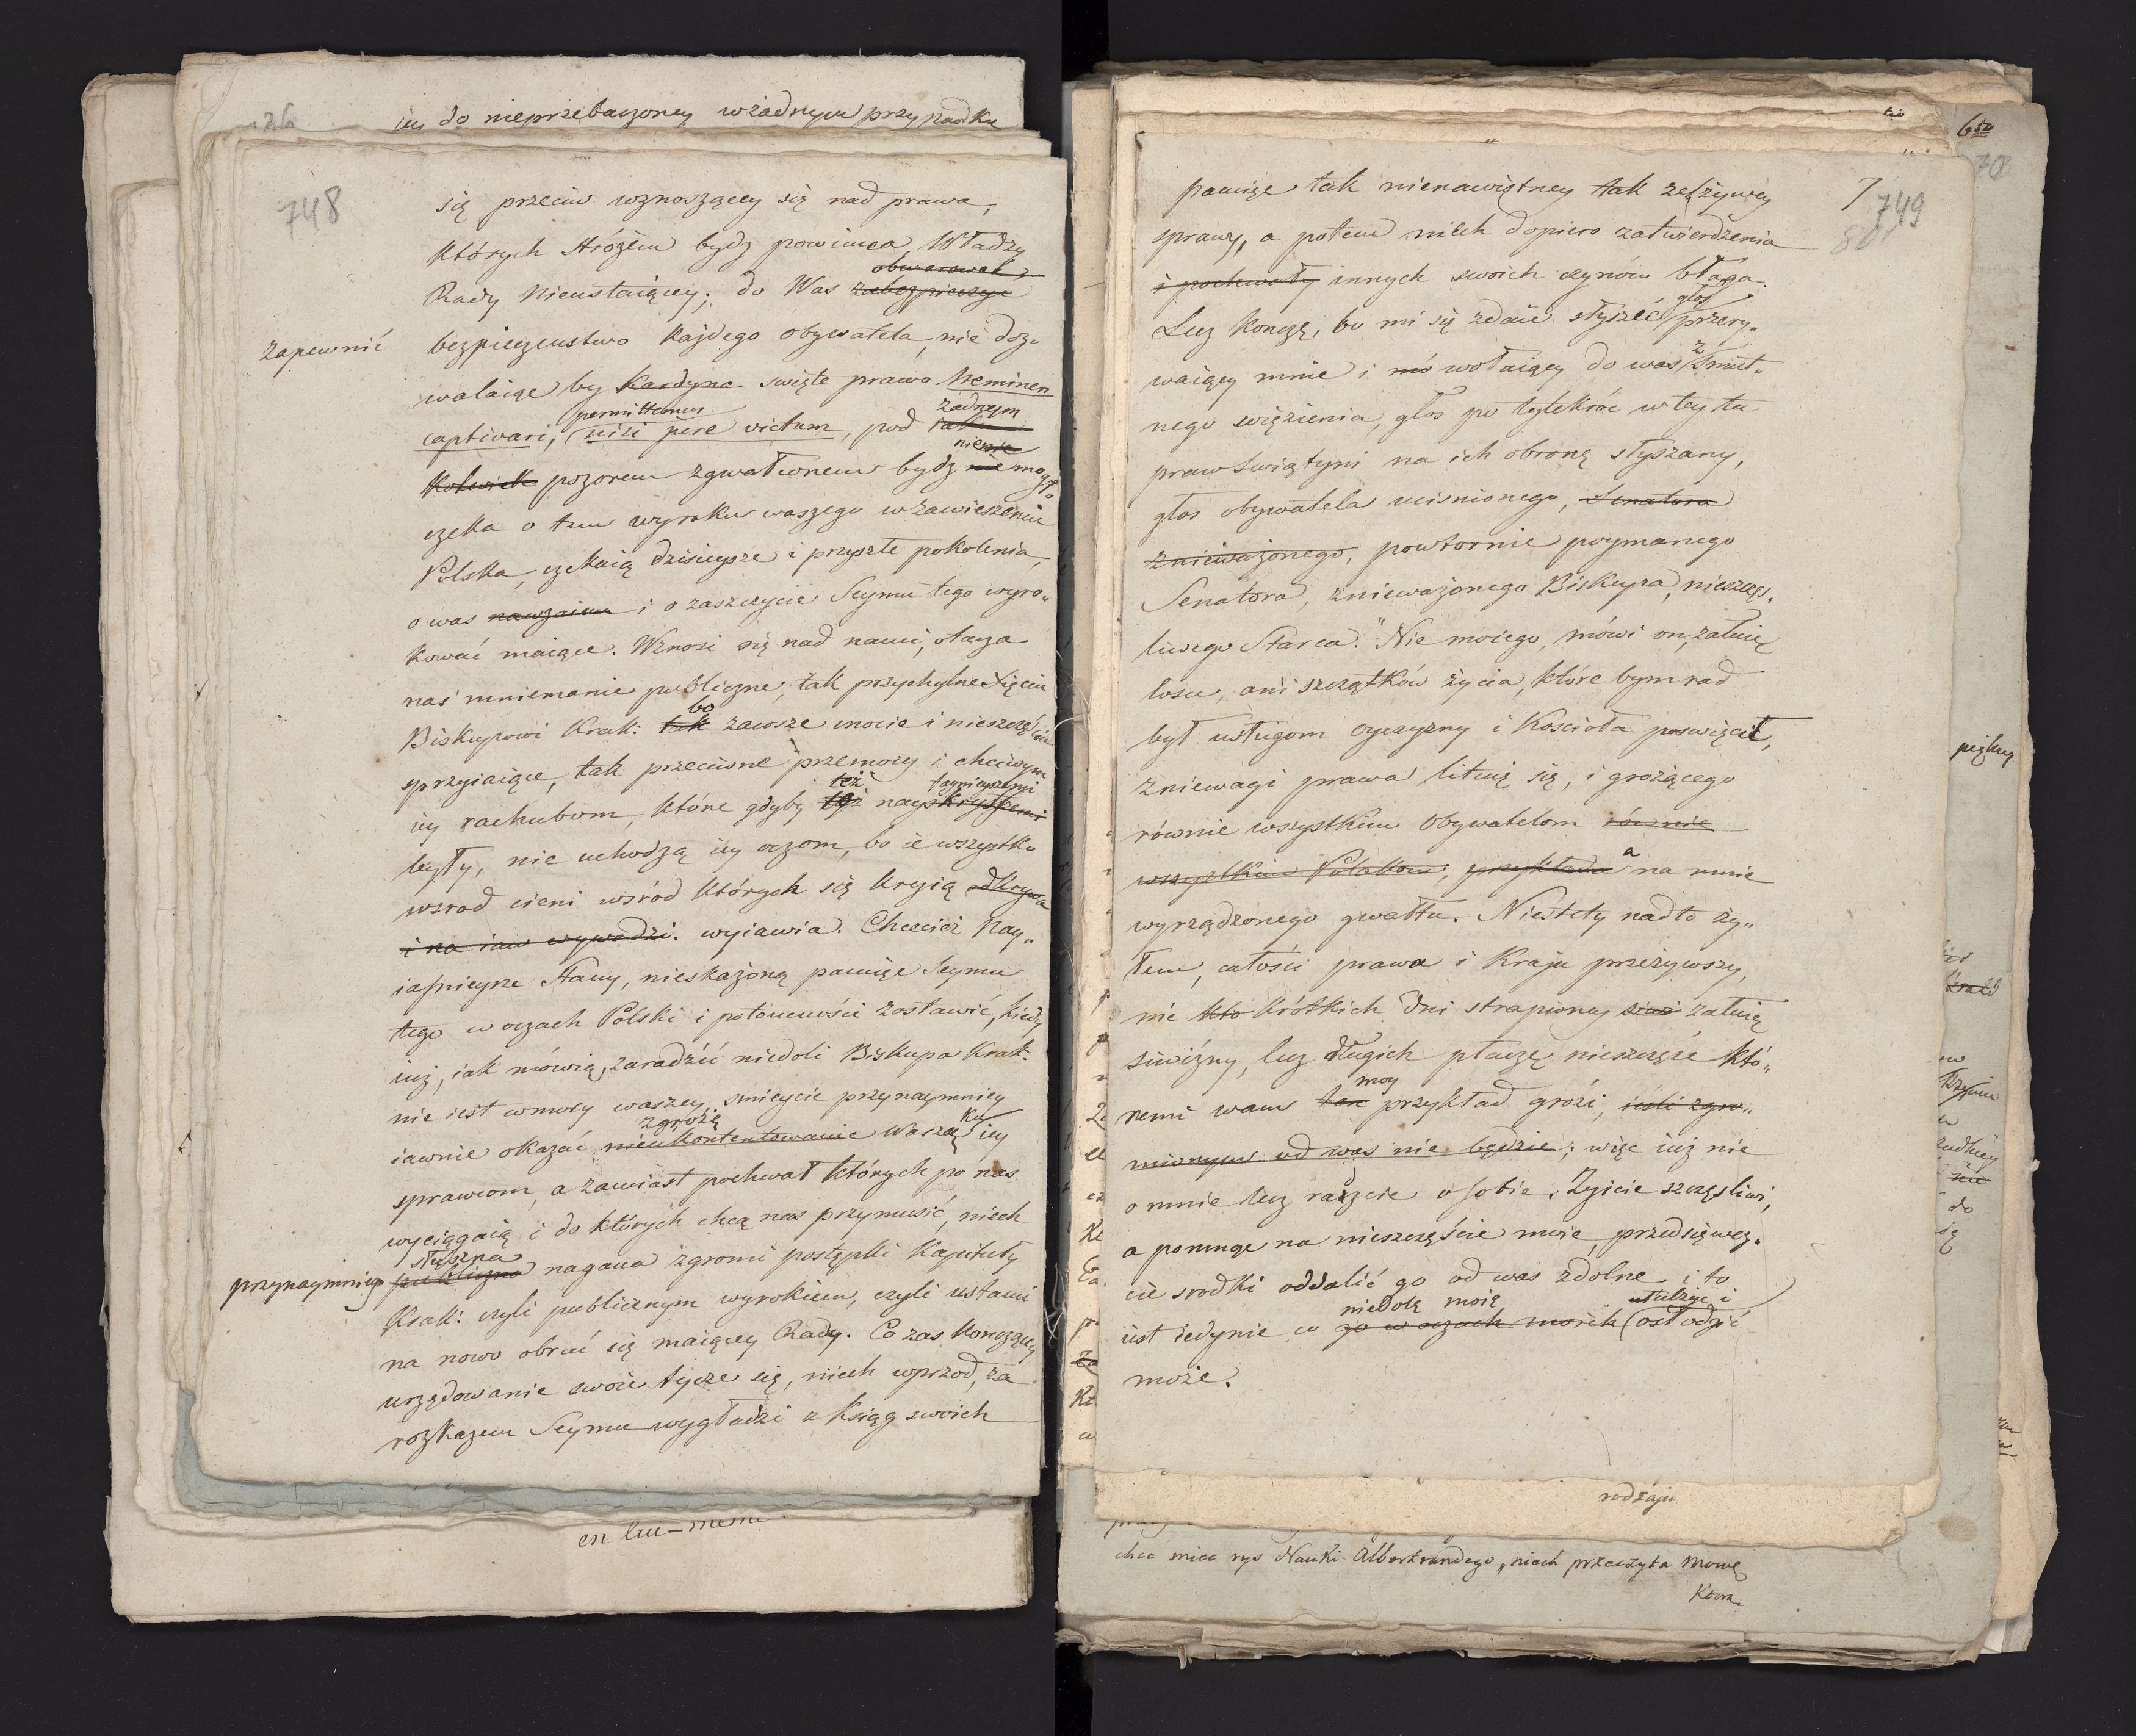 iey do nieprzebaczoney wżadnym przypadku
748
się przeciw wznoszącey się nad prawa,
których stróżem bydz powinna Władzy
obwarować
Rady Nieustaiącey; do Was zabezpieczyć
zapewnić bezpieczeństwo każdego obywatela, nie doz-
walaiąc by Kardyna swięte prawo Neminem
permittemus żadnym
captivari, nisi jure victum, pod
kolwiek pozorem zgwałconem bydz nie mogło
czeka o tem wyroku waszego w zawieszeniu
Polska, czekaią dzisieysze i przyszłe pokolenia,
o was nawzaiem i o zaszczycie Seymu tego wyro-
kować maiące. Wznosi się nad nami, otacza
nas mniemanie publiczne, tak przychylne Xięciu
bo
Biskupowi Krak: tak zawsze cnocie i nieszczęściu
sprzyiaiące, tak przeciwne przemocy i chciwym
też taynieyszemi
iey rachubom, które gdyby też nayskrytszemi
były, nie uchodzą iey oczom, bo ie wszystko
wsrod cieni wsród których się kryią odkrywa
i na iaw wywodzi. wyiawia. Chcecież Nay-
iaśnieysze Stany, nieskażoną pamięć Seymu
tego w oczach Polski i potomności zostawić, kiedy
iuż, iak mówią, zaradzić niedoli Biskupa Krak:
nie iest w mocy waszey, smieycie przynaymniey
zgrozę ku
iawnie okazać nieukontentowanie Waszę iey
sprawcom, a zamiast pochwał których po nas
wyciągaią i do których chcą nas przymusić, niech
słuszna
przynaymniey publiczna nagana zgromi postępki Kapituły
Krak: czyli publicznym wyrokiem, czyli ustami
na nowo obrać się maiącey Rady. Co zas kończącey
urzędowanie swoie tycze się, niech wprzod, za
rozkazem Seymu wygładzi z ksiąg swoich
en lui-meme
7
749
pamięć tak nienawistney tak zelżywey
sprawy, a potem niech dopiero zatwierdzenia
i pochwały innych swoich czynów błaga.
głos
Lecz kończę, bo mi się zdaie słyszeć przery-
z
waiący mnie i mó wołaiący do was smut-
nego więzienia, głos po tylekróc w tey tu
praw świątyni na ich obronę słyszany,
głos obywatela ucisnionego, Senatora
znieważonego, powtornie poymanego
Senatora, znieważonego Biskupa, nieszczęs-
liwego Starca. "Nie moiego, mówi on, żałuię
losu, ani szczątków życia, które bym rad
był usługom oyczyzny i Kościoła poswięcił,
zniewagi prawa lituię się, i grożącego
równie wszystkim Obywatelom równie
a
wszystkim Polakom, przykładu na mnie
wyrządzonego gwałtu. Niestety nadto ży-
łem, całości prawa i Kraju przeżywszy,
nie kto krótkich dni strapioney siwi żałuię
siwizny, lecz długich płaczę nieszczęść któ-
moy
remi wam ten przykład grozi, ieśli zgro-
mionym od was nie będzie; więc iuż nie
o mnie lecz radzcie o sobie. Żyicie szczęsliwi,
a pomnąc na nieszczęście moie, przedsięweź-
cie srodki oddalić go od was zdolne i to
niedolę moię utulzyć i
iest iedynie co go w oczach moich osłodzić
może.
rodzaju
chce miec rys Nauki Albertrandego, niech przeczyta mowę
Ktora.